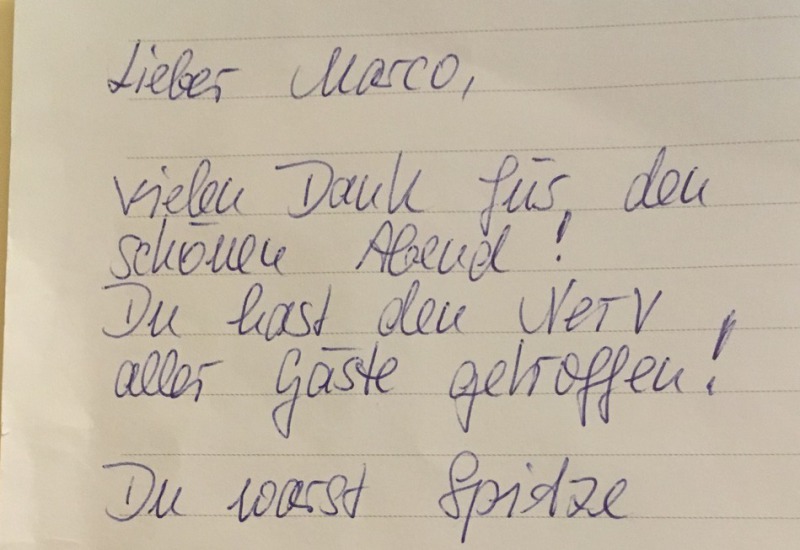 Lieber Marco,
vielen Dank für den
schönen Abend!
Du hast den Nerv
aller Gäste getroffen!
Du warst Spitze